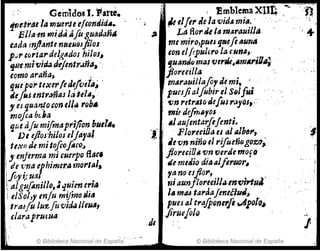 Gemidos I. Parte.
penetrar la muerte escondida.
Ella en mi dà su guadaña
cada instante nueuos filos
por cortar delgados hilos,
que mi vida desentraña,
como araña,
que por texer se desvela,
de sus entrañas la tela,
y es quanto con ella roba
mosca boba
que a su misma prision buela.
De essos hilos el jayal
texe de mi tosco saco,
y enferma mi cuerpo flaco
de vna ephimera mortal,
soy igual
al gusanillo, à quien cria
el Sol, y en su mismo dia
tras su luz su vida lleua,
clara prueua
de
Emblema XIII.
de el ser de la vida mia.
La flor de la marauilla
me miro, pues que se auna
con el sepulcro la cuna,
quando mas verde, amarilla;
florecilla
marauilla soy de mi,
pues si al subir el Sol fui
vn retrato de sus rayos,
mis desmayos
al ausentarse senti.
Florecilla es al albor,
de vn niño el risueño gozo,
florecilla vn verde moço
de medio dia al feruor,
ya no es flor,
ni aun florecilla en virtud
la mas tarda senectud,
pues al trasponerse Apolo,
sirue solo
© Biblioteca Nacional de España
© Biblioteca Nacional de España